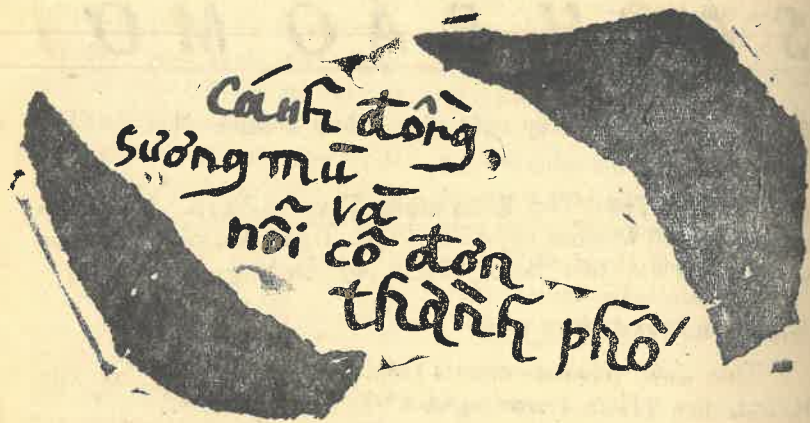 Cánh đồng,
sương mù
và
nỗi cô đơn
thành phố